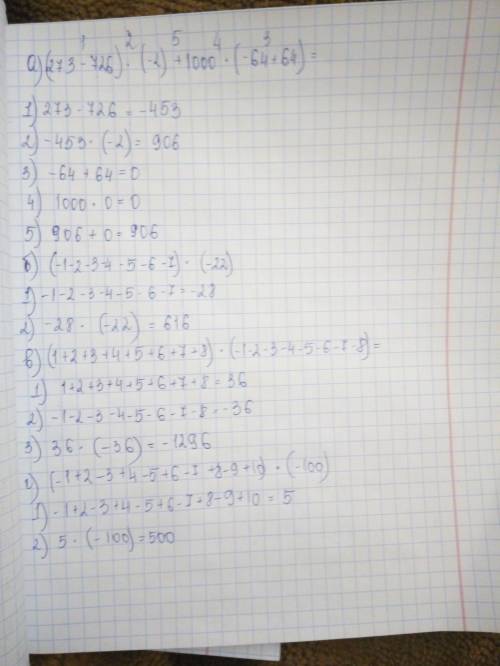 1 2 5 4 3
а)(273-726) · (-2) + 1000 · (-64+64) =
1) 273-726 = -453
2) -453 · (-2) = 906
3) -64 + 64 = 0
4) 1000 · 0 = 0
5) 906 + 0 = 906
б) (-1-2-3-4-5-6-7) · (-22)
1) -1-2-3-4-5-6-7 = -28
2) -28 · (-22) = 616
в) (1+2+3+4+5+6+7+8) · (-1-2-3-4-5-6-7-8)=
1) 1+2+3+4+5+6+7+8 = 36
2) -1-2-3-4-5-6-7-8 = -36
3) 36 · (-36) = -1296
г) (-1+2-3+4-5+6-7+8-9+10) · (-100)
1) -1+2-3+4-5+6-7+8-9+10 = 5
2) 5 · (-100) = 500